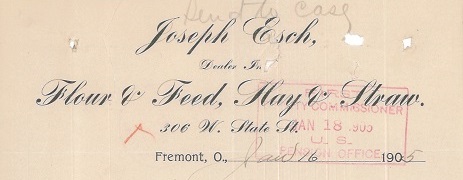 Send to Case
Joseph Esch,
Dealer In
Flour & Feed, Hay & Straw.
306 W. State St.
COMMISSIONER
JAN 18 1905
U. S.
PENSION OFFICE
Fremont, O., Jan 16 1905